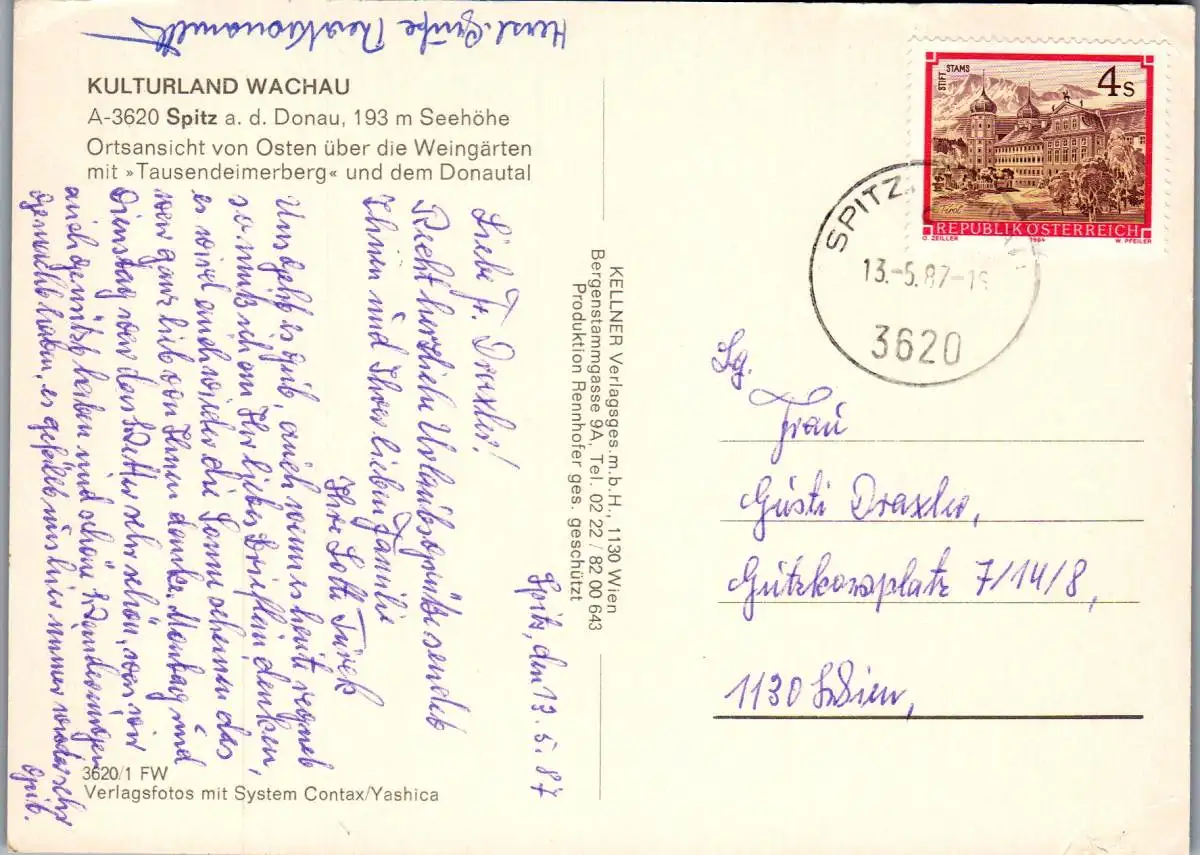 Herzl. Grüße
KULTURLAND WACHAU
A-3620 Spitz a. d. Donau, 193 m Seehöhe
Ortsansicht von Osten über die Weingärten
mit »Tausendeimerberg« und dem Donautal
Spitz, den 13. 5. 87
Liebe Fr. Draxler!
Recht herzliche Urlaubsgrüße sendet
Ihnen und Ihrer lieben Familie
Ihre Lotte Türck
Uns geht es gut, auch wenn es heute regnet
so muß ich an Ihr liebes Brieflein denken,
es wird auch wieder die Sonne scheinen das
war ganz lieb von Ihnen danke. Montag und
Dienstag war das Wetter sehr schön, was wir
auch genützt haben und schöne Wanderungen
gemacht haben, es gefällt uns hier immer wieder sehr
gut.
3620/1 FW
Verlagsfotos mit System Contax/Yashica
KELLNER Verlagsges.m.b.H., 1130 Wien
Bergenstammgasse 9A, Tel. 02 22 / 82 00 643
Produktion Rennhofer ges. geschützt
STIFT STAMS
4 S
REPUBLIK ÖSTERREICH
O. ZEILLER 1984 W. PFEILER
SPITZ
13.-5.87-
3620
Sg.
Frau
Gusti Draxler,
Gützkowplatz 7/14/8,
1130 Wien,